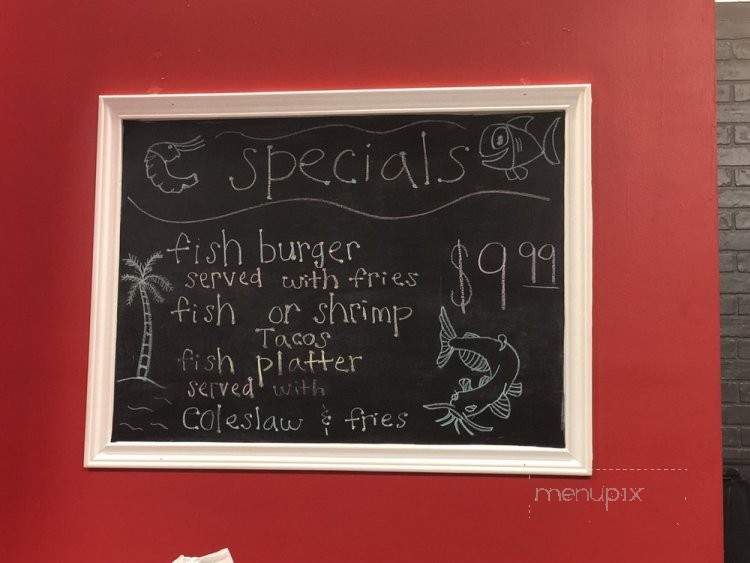 specials
fish burger
served with fries
$9.99
fish or shrimp
Tacos
fish platter
served with
Coleslaw & fries
menupix